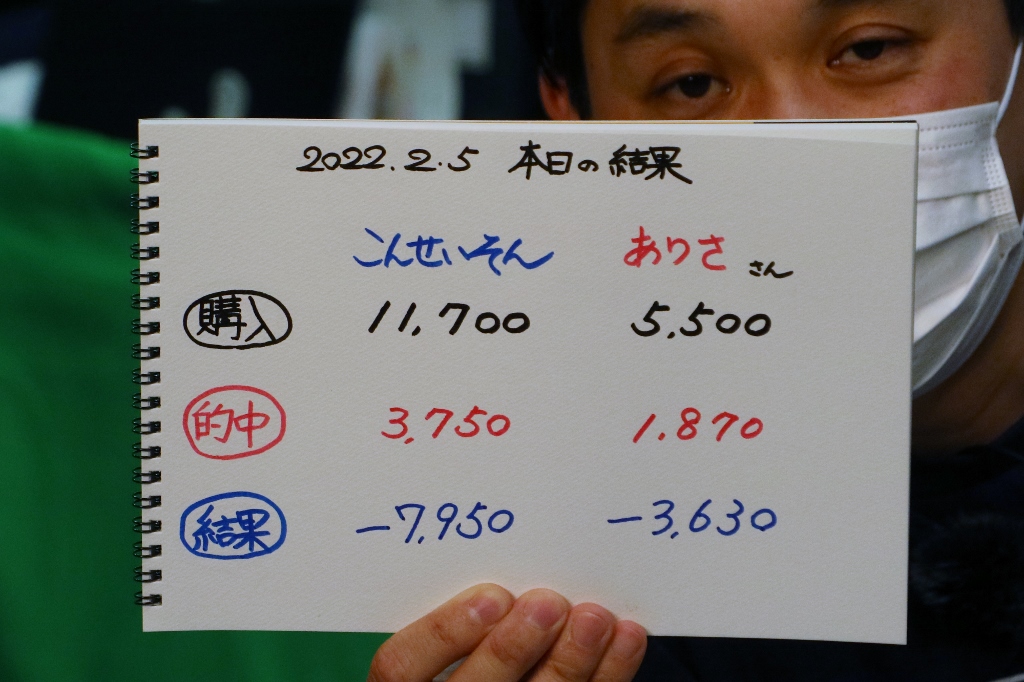 2022.2.5 本日の結果
こんせいそん ありさ さん
購入 11,700 5,500
的中 3,750 1,870
結果 -7,950 -3,630